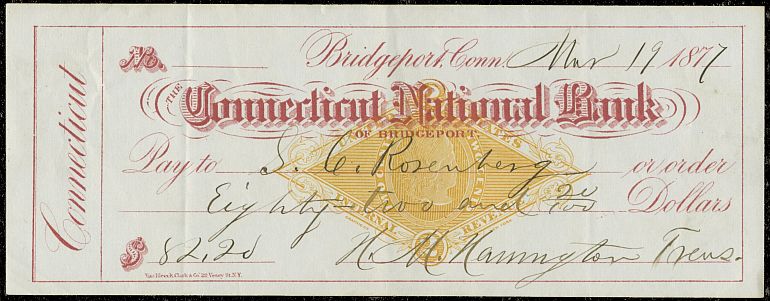 Connecticut
No.
Bridgeport, Conn. Mar 19 1877
THE Connecticut National Bank
OF BRIDGEPORT.
Pay to S. C. Rosenberg or order
Eighty-two and 20/100 Dollars
INTERNAL REVENUE
$ 82.20 Treas.
Van Bleeck Clark & Co. 22 Vesey St. N.Y.